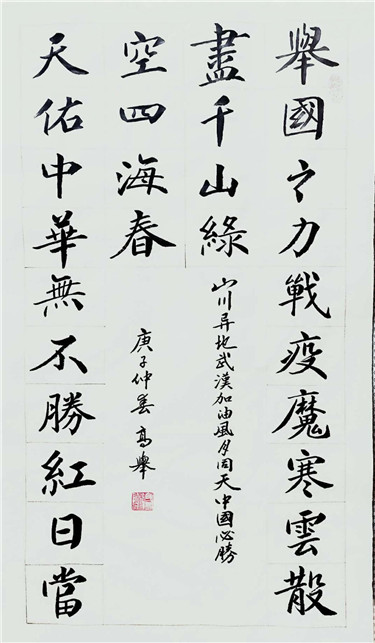 舉國之力戰疫魔寒雲散
盡千山綠
天佑中華無不勝紅日當
空四海春
山川异地武漢加油風月同天中國必勝
庚子仲春 高舉